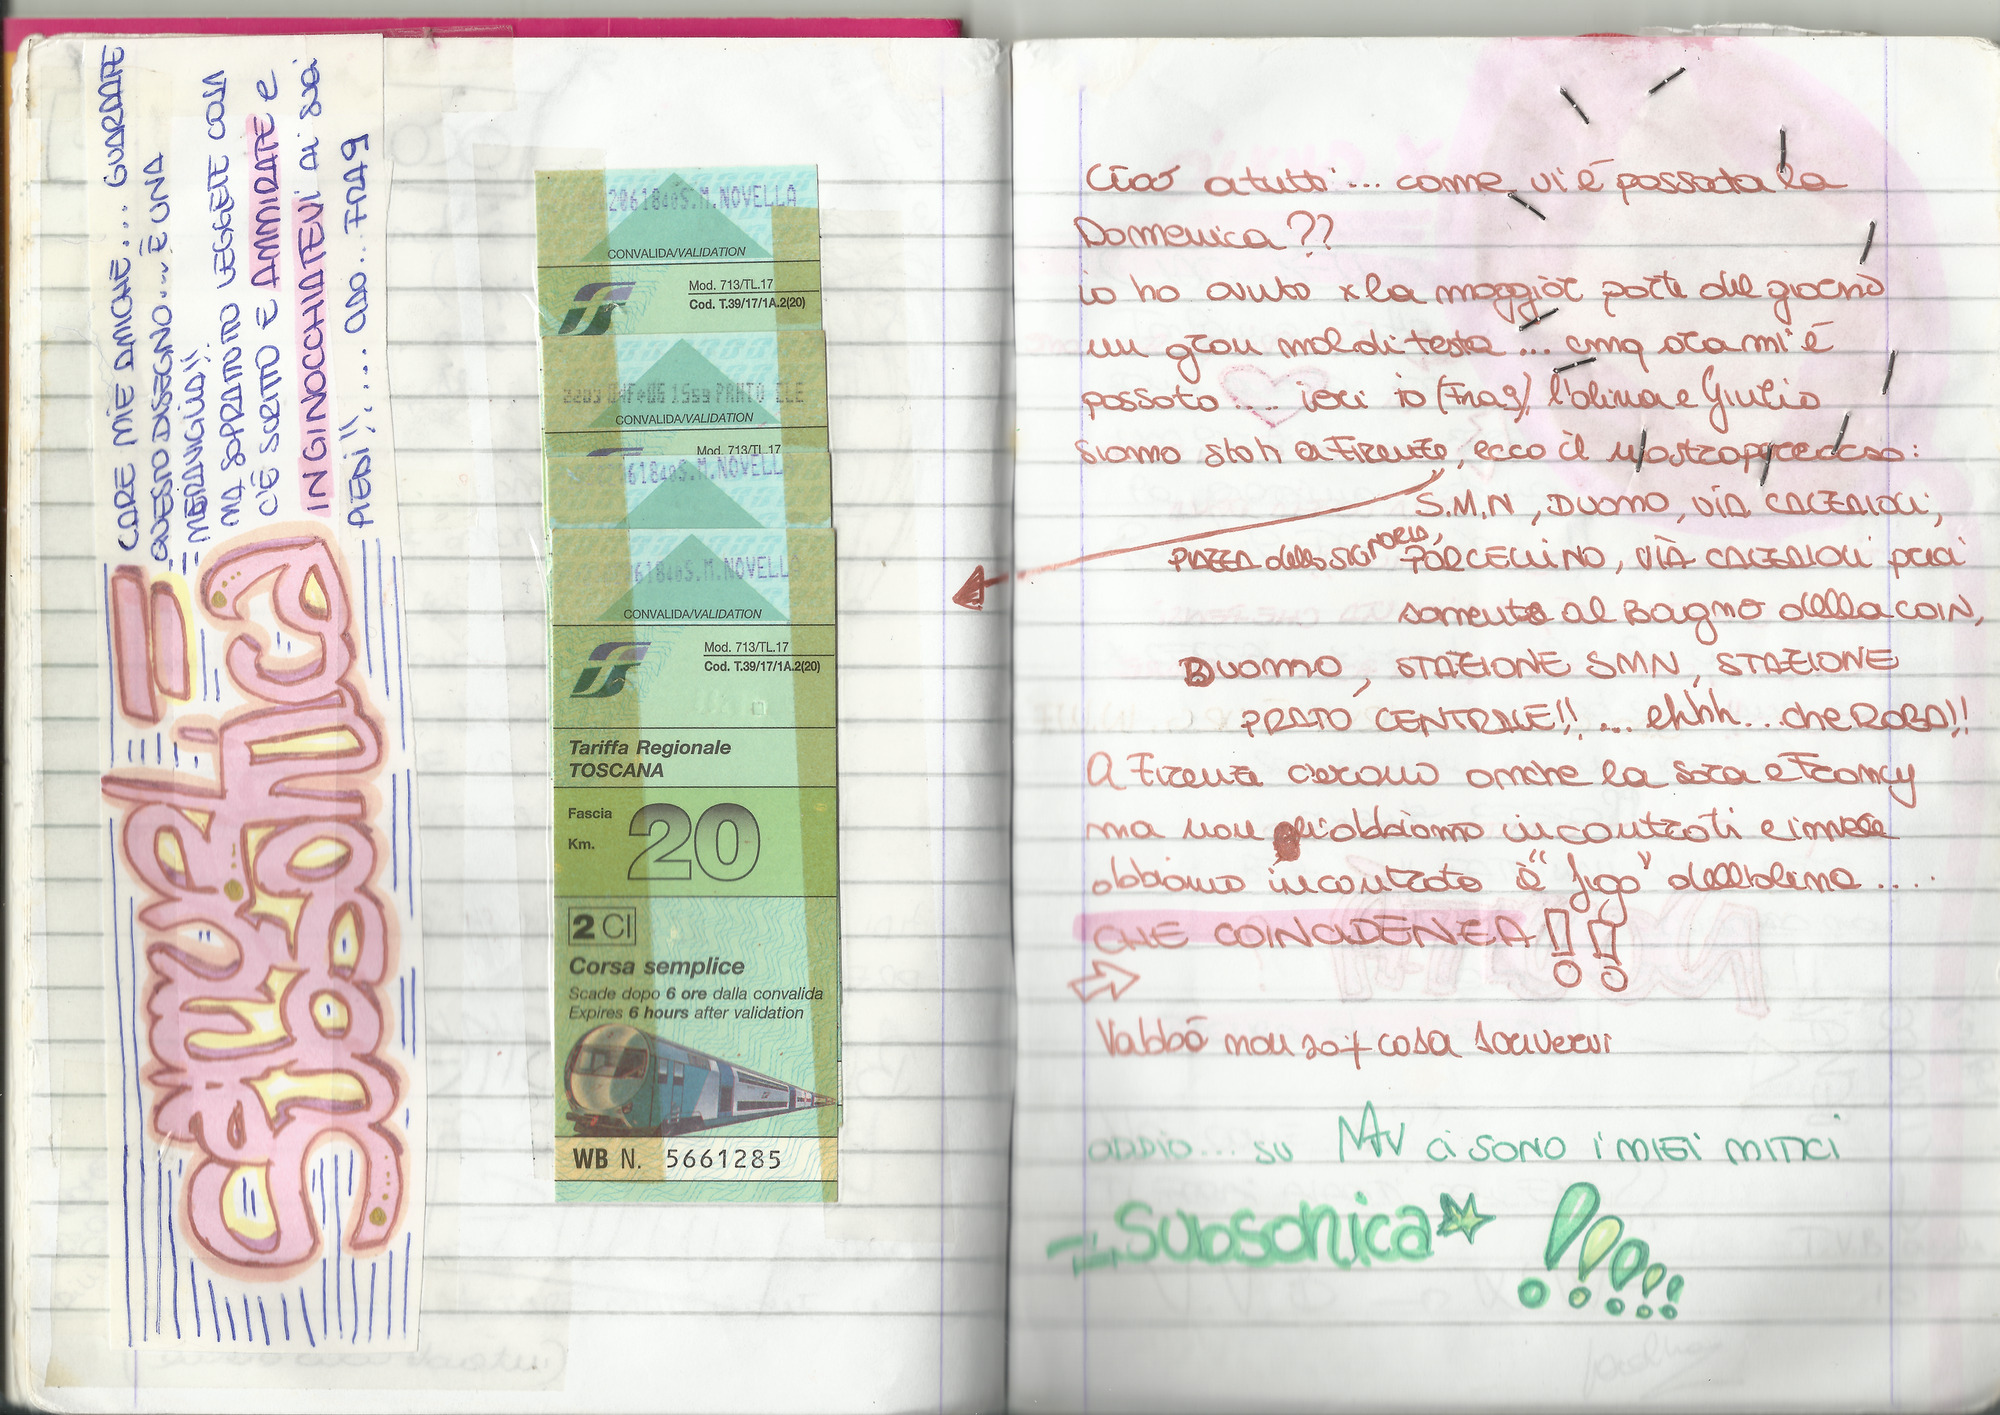 CARE MIE AMICHE... GUARDATE
QUESTO DISEGNO... È UNA
MERAVIGLIA!!
MA SOPRATUTO LEGGETE COSA
C'È SCRITTO E AMMIRATE E
INGINOCCHIATEVI AI SUOI
PIEDI!!... ADO... FRA9
Samuel
Subsonica
2061840S.M.NOVELLA
CONVALIDA/VALIDATION
Mod. 713/TL.17
Cod. T.39/17/1A.2(20)
PRATO CLE
CONVALIDA/VALIDATION
Mod. 713/TL.17
61840S.M.NOVELL
61840S.M.NOVELL
CONVALIDA/VALIDATION
Mod. 713/TL.17
Cod. T.39/17/1A.2(20)
Tariffa Regionale
TOSCANA
Fascia
Km.
20
2 Cl
Corsa semplice
Scade dopo 6 ore dalla convalida
Expires 6 hours after validation
WB N. 5661285
Ciao a tutti... come vi è passata la
Domenica??
io ho avuto x la maggior parte del giorno
un gran mal di testa... cmq ora mi è
passato .... ieri io (Fra9), l'olima e Giulio
siamo stati a Firenze, ecco il nostro percorso:
S.M.N, DUOMO, VIA CALZAIOLI,
PIAZZA della SIGNORIA, PORCELLINO, VIA CALZAIOLI
al Bagno della COIN,
DUOMO, STAZIONE SMN, STAZIONE
PRATO CENTRALE!! ... ehhh... che ROBA!!
A Firenze c'erano anche la Sara e Francy
ma non gli abbiamo incontrati e invece
abbiamo incontrato il "figo" dell'olima ....
CHE COINCIDENZA!!
Vabbò non so + cosa scrivervi
ADDIO... SU MTV CI SONO I MIEI MITICI
Subsonica !!!!!